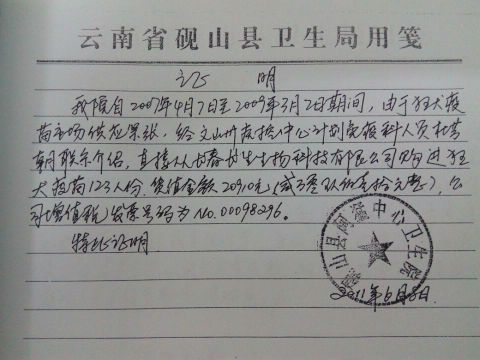 云南省砚山县卫生局用笺
证 明
我院自2007年4月7日至2009年3月2日期间,由于狂犬疫
苗市场供应紧张,经文山州疫控中心计划免疫科人员杜芸
朝联系介绍,直接从长春长生生物科技有限公司购进狂
犬疫苗123人份,货值金额20910元(贰万零玖佰壹拾元整),公
司增值税发票号码为No.00098296。
特此证明
砚山县阿 中心卫生院
2011年6月8日.